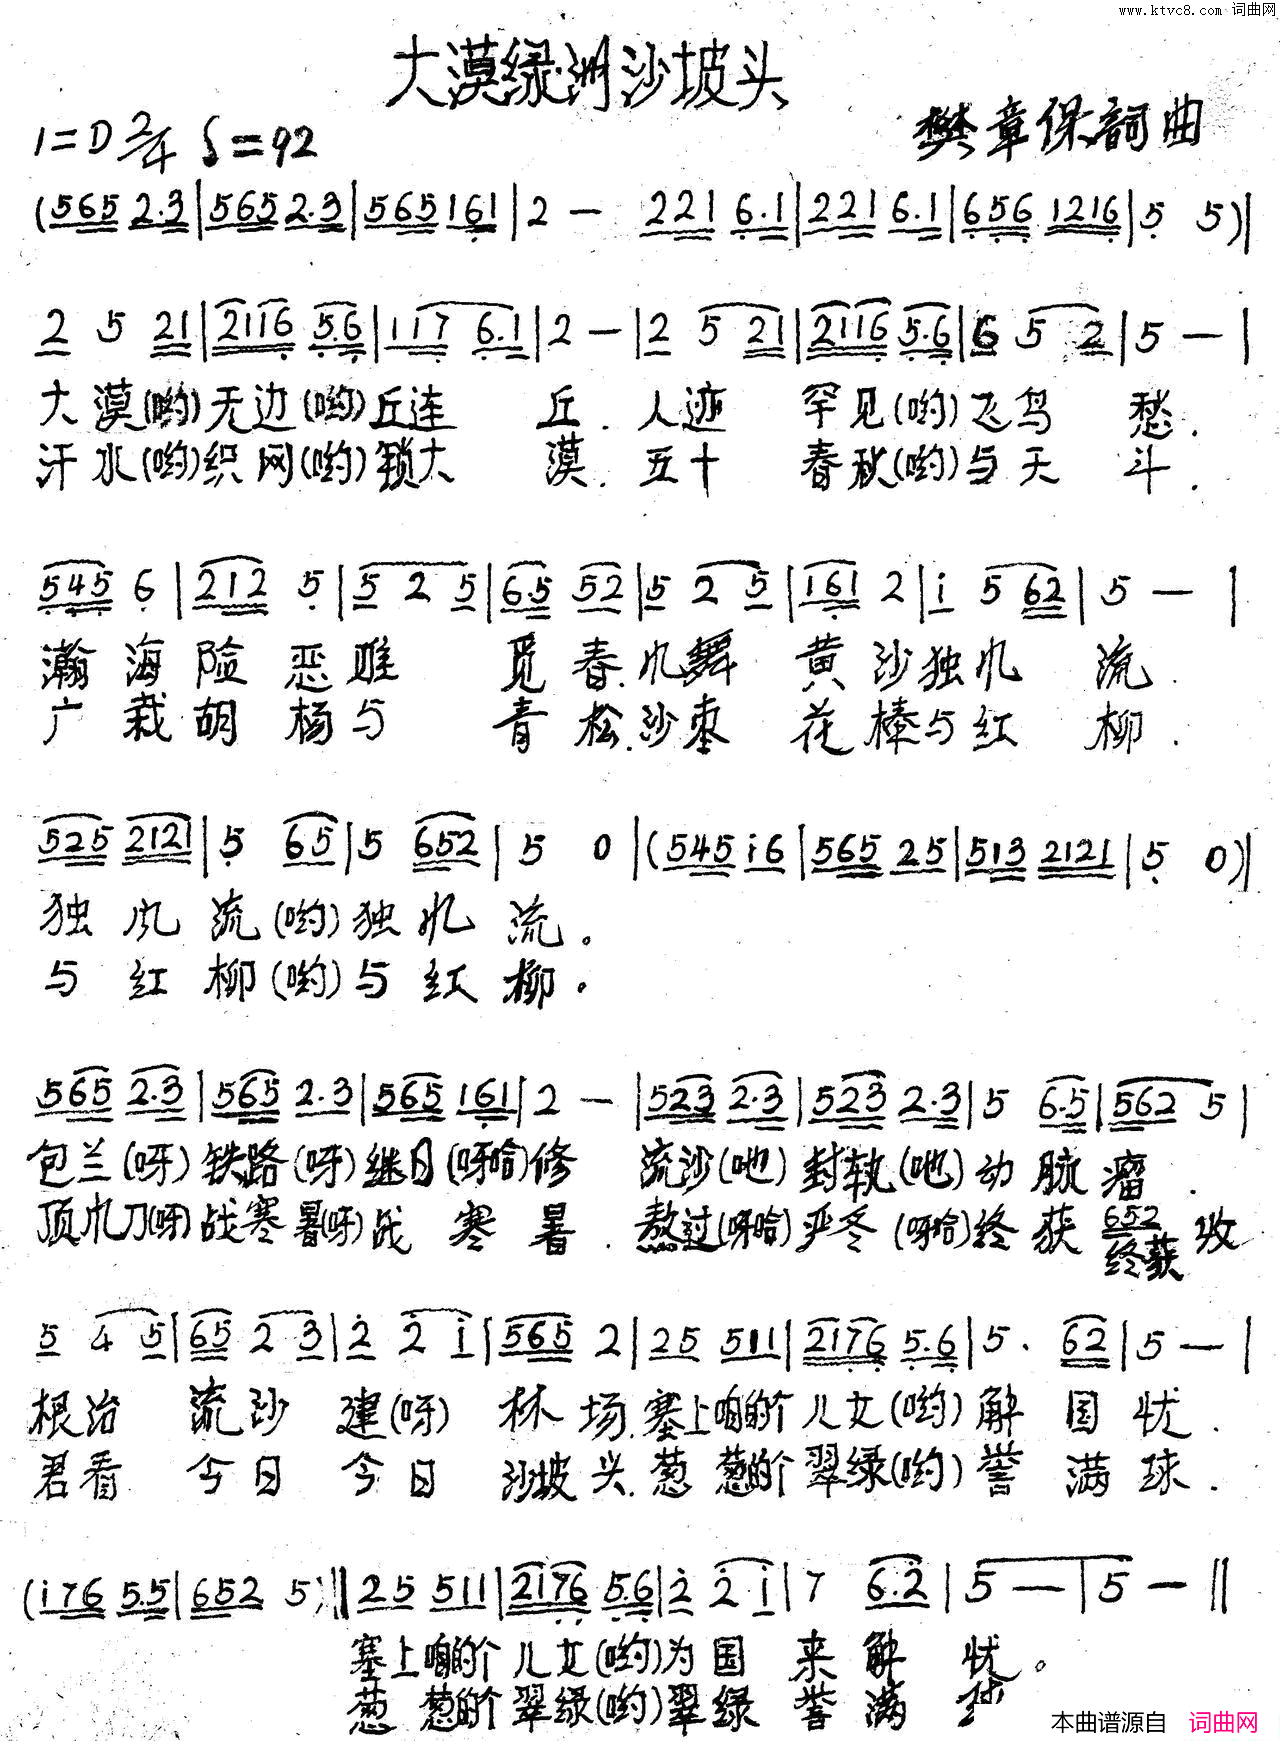 www.ktvc8.com 词曲网
大漠绿洲沙坡头
1=D 2/4 ♩=92
樊章保詞曲
(565 2.3|565 2.3|565 161|2 — 221 6.1|221 6.1|656 1216|5 5)|
2 5 21|2116 5.6|117 6.1|2 —|2 5 21|2116 5.6|6 5 2|5 —|
大漠(哟)无边(哟)丘连 丘.人迹 罕见(哟)飞鸟 愁.
汗水(哟)织网(哟)锁大 漠.五十 春秋(哟)与天 斗.
545 6|212 5|5 2 5|6.5 52|5 2 5|161 2|i 5 62|5 —|
瀚海险恶难 觅春.风舞 黄沙独风 流.
广栽胡杨与 青松.沙枣 花棒与红 柳.
525 2121|5 65|5 652|5 0|(545 i6|565 25|513 2121|5 0)|
独风流(哟)独风流。
与红柳(哟)与红柳。
565 2.3|565 2.3|565 161|2 —|523 2.3|523 2.3|5 6.5|562 5|
包兰(呀)铁路(呀)继日(呀哈)修 流沙(吔)封轨(吔)动脉瘤.
顶风刀(呀)战寒暑(呀)战寒暑.熬过(呀哈)严冬(呀哈)终获 652 收
终获
5 4 5|65 2 3|2 2 i|565 2|25 511|2176 5.6|5. 62|5 —|
根治 流沙 建(呀) 林场.塞上咱的个儿女(哟)解国忧.
君看 今日 今日 沙坡头.葱葱的个翠绿(哟)誉满球.
(i76 5.5|652 5)‖25 511|2176 5.6|2 2 i|7 6.2|5 —|5 —‖
塞上咱的个儿女(哟)为国 来解 忧。
葱葱的个翠绿(哟)翠绿 誉满
本曲谱源自 词曲网